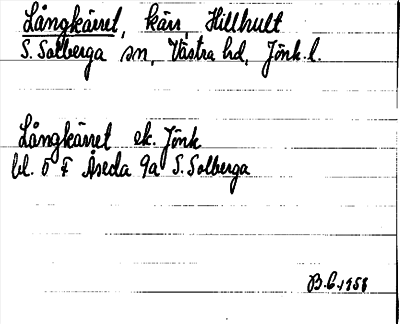 Långkärret, kärr, Hillhult
S. Solberga sn, Västra hd, Jönk. l.
Långkärret ek. Jönk
bl. 5 F Åseda 9a S. Solberga
B.G. 1958